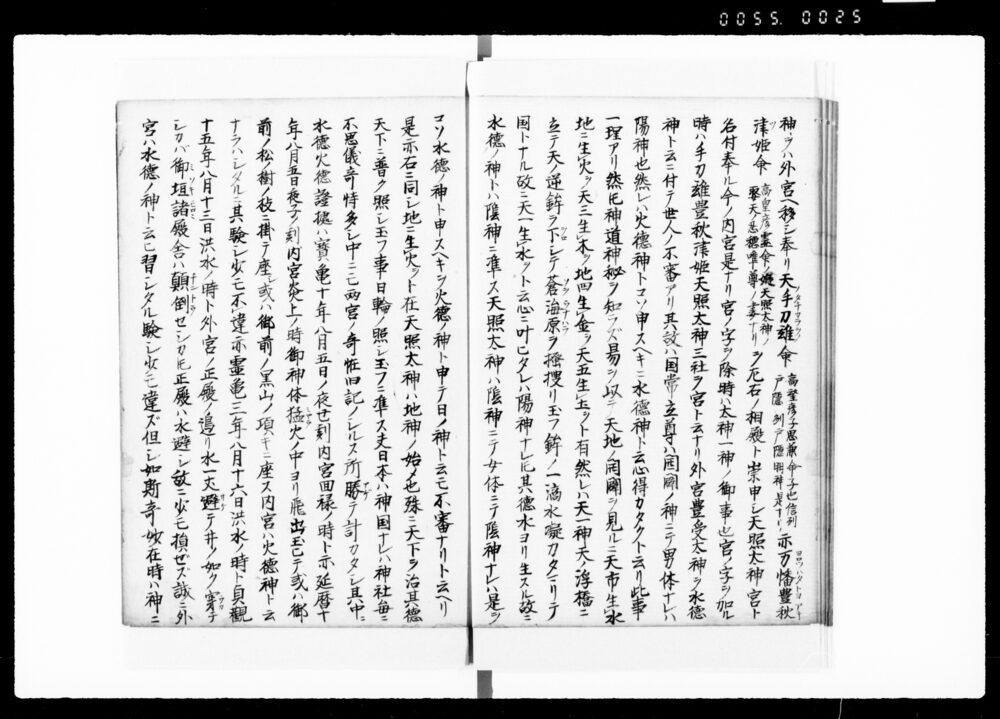 0055.0025
神ヲハ外宮ヘ移シ奉リ天手刀雄命 高皇彦子思兼命子也信列戸隠列戸隠明神是ナリ 亦万幡豊秋
津姫命 高皇彦霊命ノ姫天照太神ノ ヲ左右ノ相殿ト崇申シ天照太神ノ宮ト
名付奉ル今ノ内宮是ナリ宮ノ字ヲ除時ハ太神一神ノ御事也宮ノ字ヲ加ル
時ハ手刀雄豊秋津姫天照太神三社ヲ宮ト云ナリ外宮豊受太神ヲ水徳
神ト云ニ付テ世人ノ不審アリ其故ハ国常立尊ハ開闢ノ神ニテ男体ナレハ
陽神也然レハ火徳神トコソ申スヘキニ水徳神ト云心得カタクト云リ此事
一理アリ然ㇳモ神道神秘ヲ知ラズ易ヲ以テ天地ノ開闢ヲ見ルニ天一生水
地二生火ヲ天三生木ヲ地四生金ヲ天五生土ヲト有然レハ天一神天ノ浮橋ニ
立テ天ノ逆鉾ヲ下シテ蒼海原ヲ掻捜リ玉フ鉾ノ一滴水凝カタマリテ
国トナル故ニ天一生水ヲト云心ニ叶ヒタレハ陽神ナレㇳモ其徳水ヨリ生スル故ニ
水徳ノ神トハ陰神ニ準ス天照太神ハ陰神ニテ女体ニテ陰神ナレハ是ヲ
コソ水徳ノ神ト申スヘキヲ火徳ノ神ト申テ日ノ神ト云モ不審ナリト云ヘリ
是亦右ニ同シ地二生火ヲト在天照太神ハ地神ノ始也殊ニ天下ヲ治其徳
天下ニ普ク照シ玉フ事日輪ノ照シ玉フニ準ス夫日本ハ神国ナレハ神社毎ニ
不思儀奇特多シ中ニモ両宮ノ奇恠旧記ノシルス所勝テ計カタシ其中ニ
水徳火徳證拠ハ宝亀十年八月五日ノ夜丑刻内宮回禄ノ時ト亦延暦十
年八月五日夜子ノ刻内宮炎上ノ時御神体猛火ノ中ヨリ飛出玉ヒテ或ハ御
前ノ松ノ樹ノ枝ニ掛テ座シ或ハ御前ノ黒山ノ頂キニ座ス内宮ハ火徳神ト云
ナラハシタルニ其験シ少モ不違亦霊亀三年八月十六日洪水ノ時ト貞観
十五年八月十三日洪水ノ時ト外宮ノ正殿ノ辺リ水一丈避テ井ノ如ク穿テ
シカバ御垣諸殿舎ハ顛倒センカㇳモ正殿ハ水避シ故ニ少モ損ゼズ誠ニ外
宮ハ水徳ノ神ト云ヒ習シタル験シ少モ違ズ但シ如斯奇妙在時ハ神ニ